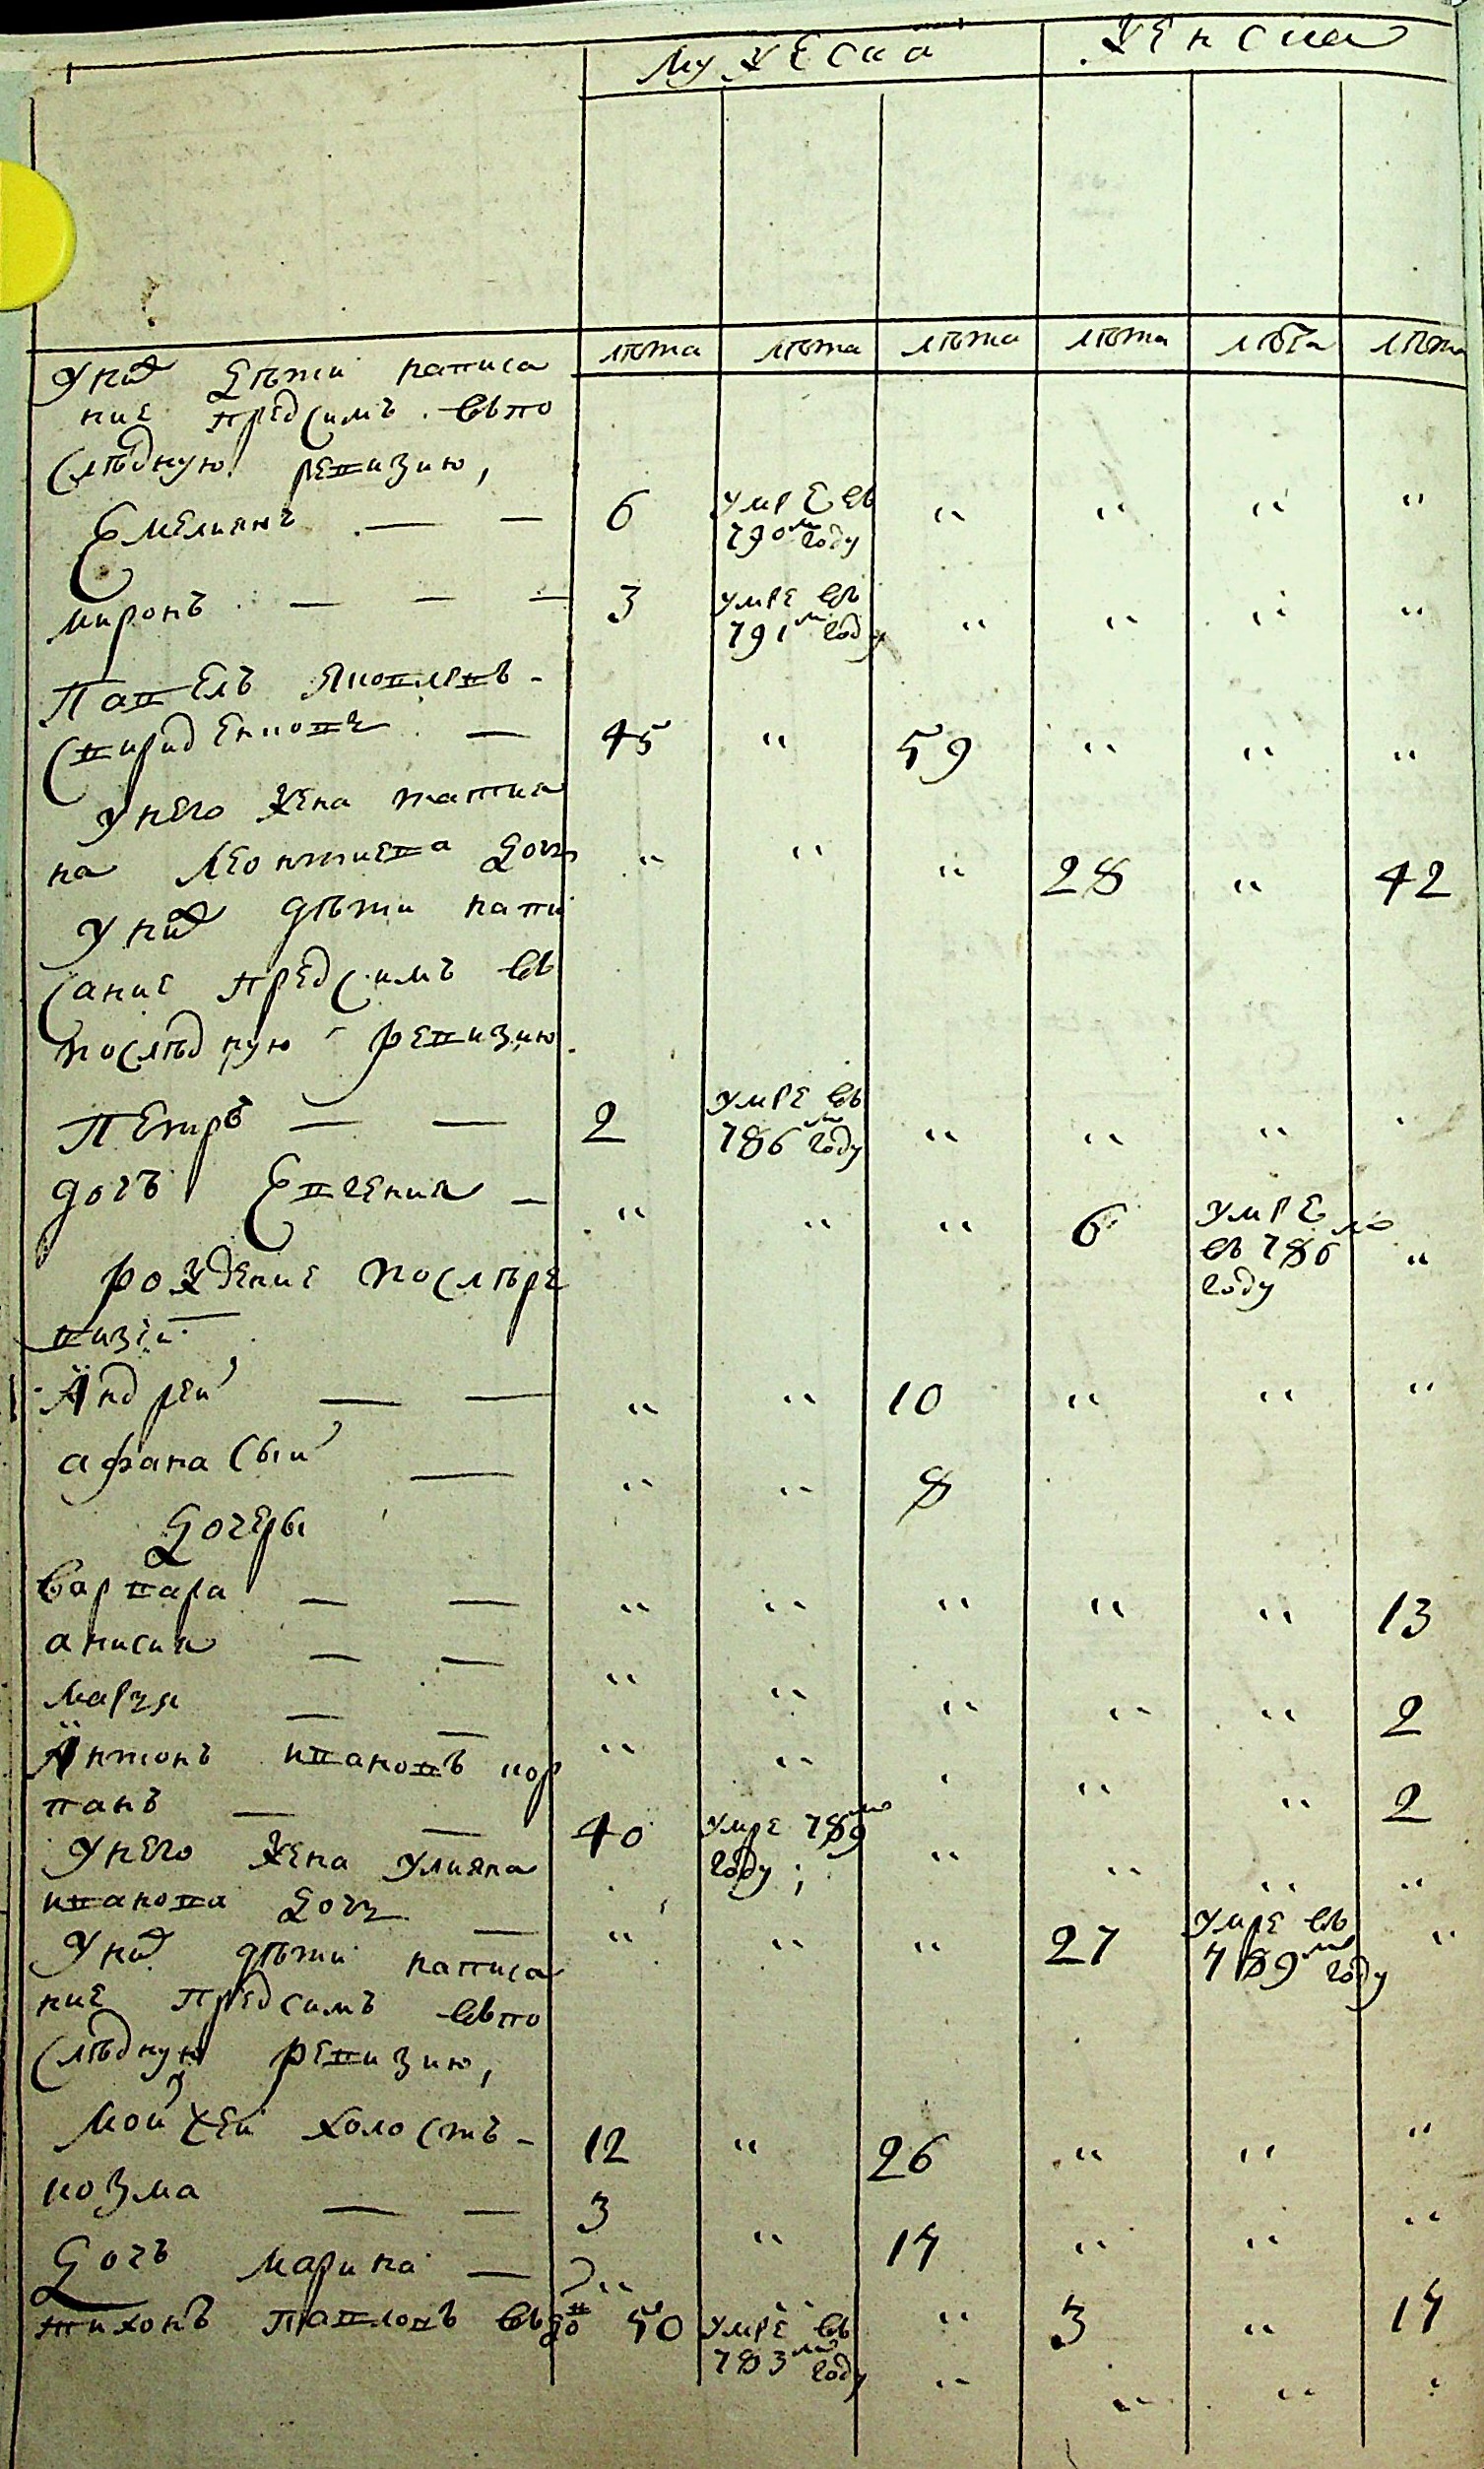 Мужеска Женска
лѣта лѣта лѣта лѣта лѣта лѣта
У них дѣти написа
ние предсимъ въ по
слѣдную ревизию,
Емелианъ — — 6 умре въ 790м году " " " "
миронъ — — — 3 умре въ 791м году " " " "
Павелъ Яковлевъ
Свириденковъ — 45 " 59 " " "
У него жена татия
на Леонтиева дочь " " " 28 " 42
У них дѣти напи
сание предсимъ въ
послѣдную ревизию.
Петръ — — 2 умре въ 786м году " " " "
дочъ Евгения — " " " 6 умре въ 786мъ году "
рождение послѣ ре
визіи
Андрей — — " " 10 " " "
афанасьий — " " 8
Дочеры
варвара — — " " " " " 13
анисия — — " " " " " 2
марья — — " " " " " 2
Антонъ ивановъ кор
панъ — — 40 умре 789мъ году; " " " "
У него жена улияна
иванова дочь — " " " 27 умре въ 789мъ году "
У них дѣти написа
ние предсимъ въ по
слѣдную ревизию,
Мойсей холостъ - 12 " 26 " " "
козма — — 3 " 17 " " "
Дочъ марина — " " " 3 " 17
тихонъ павловъ вдов 50 умре въ 783мъ году " " " "